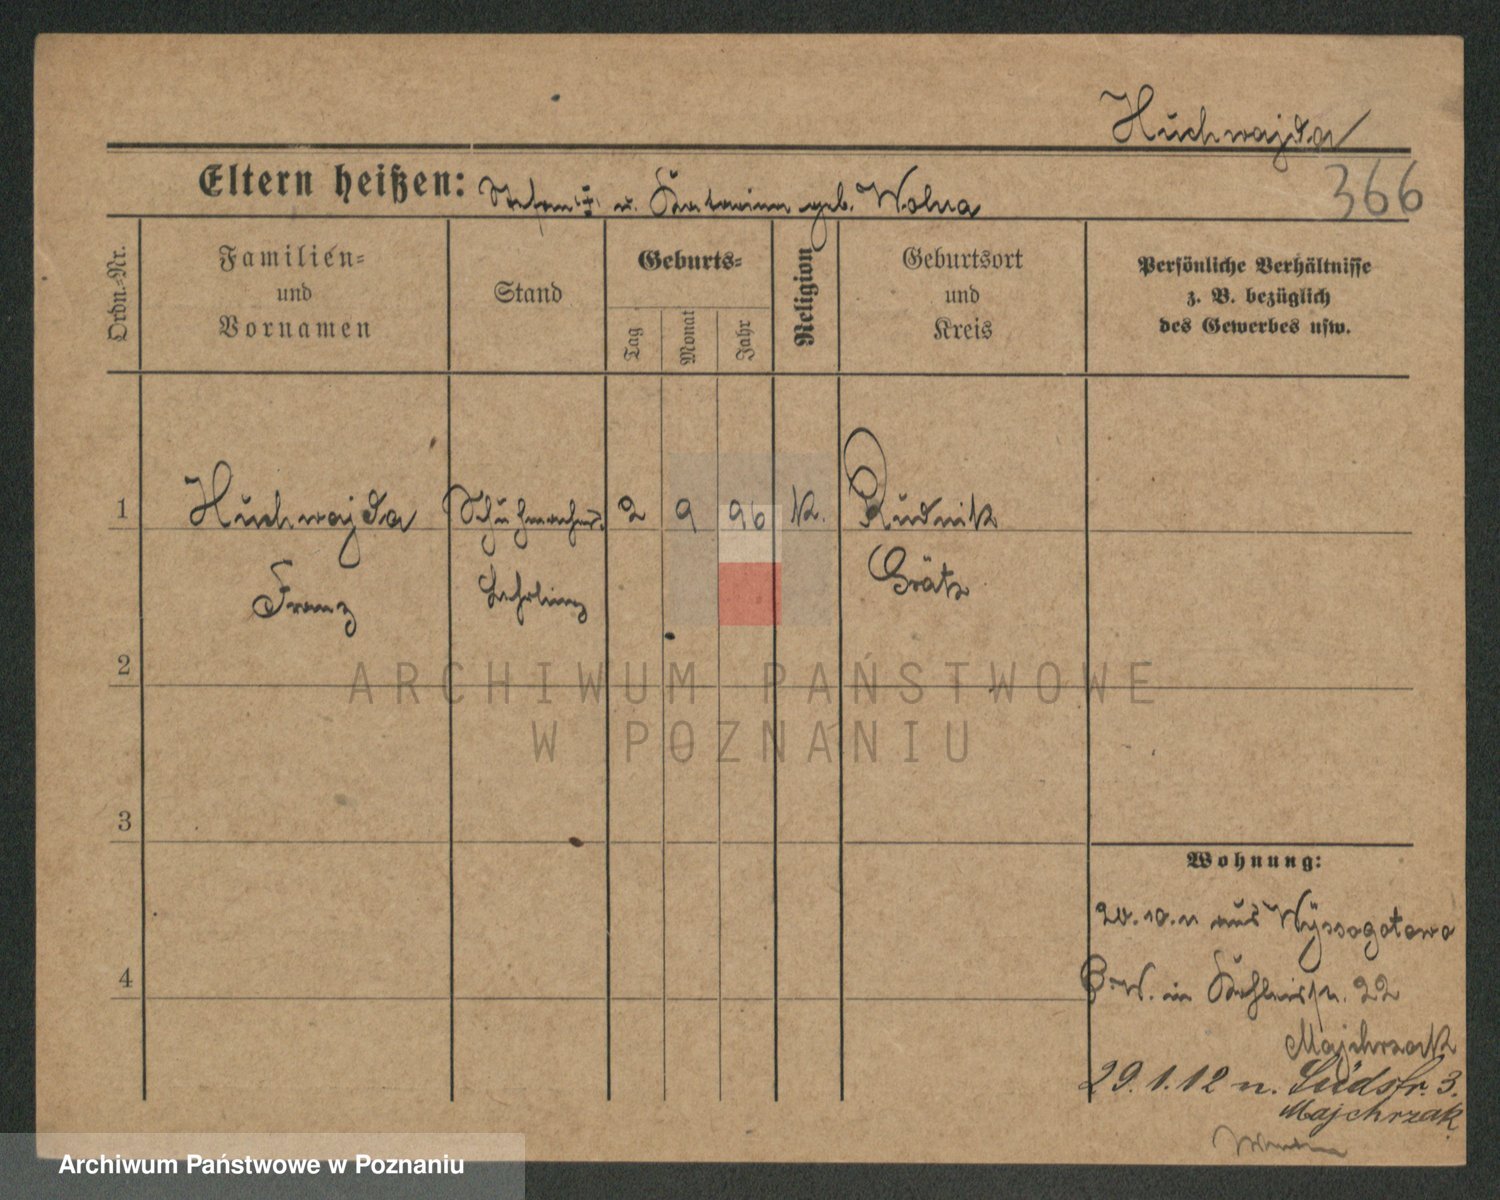 Huchwajda
366
Eltern heißen: Stefan u. Katarina geb. Wolna
Ordn.-Nr.
Familien-
und
Vornamen
Stand
Geburts-
Tag
Monat
Jahr
Religion
Geburtsort
und
Kreis
Persönliche Verhältnisse
z. B. bezüglich
des Gewerbes usw.
1
Huchwajda
Schuhmacher
2
9
96
K.
Rudnik
Franz
Lehrling
Grätz
2
ARCHIWUM PAŃSTWOWE
W POZNANIU
3
4
Wohnung:
20.10.11 aus Wyssogotowo
B.W. in 22
Majchrzak
29.1.12 n. Südstr. 3.
Majchrzak
Archiwum Państwowe w Poznaniu